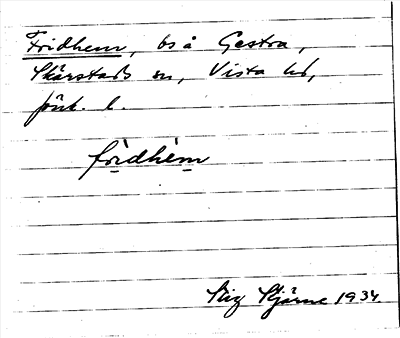 Fridhem, bs å Gestra,
Skärstads sn, Vista hd,
Jönk. l.
fridhem
Stig Stjärne 1934.